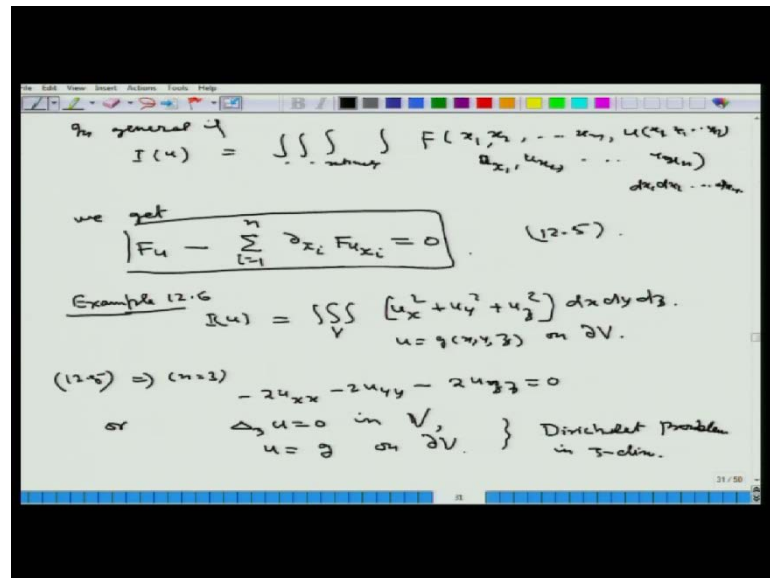 File Edit View Insert Actions Tools Help
In general if
I(u) = ∫∫∫ ∫ F(x₁, x₂, ... xₙ, u(x₁ x₂ ... xₙ)
uₓ₁, uₓ₂, ... uₓₙ)
dx₁dx₂ ... dxₙ
we get
Fᵤ - Σᵢ₌₁ⁿ ∂ₓᵢ Fᵤₓᵢ = 0. (12.5).
Example 12.6
I(u) = ∫∫∫_V [uₓ² + u_y² + u_z²] dx dy dz.
u = g(x, y, z) on ∂V.
(12.5) ⇒ (n=3)
-2uₓₓ - 2u_yy - 2u_zz = 0
or Δ₃ u = 0 in V, } Dirichlet problem
u = g on ∂V. in 3-dim.
31 / 50
31